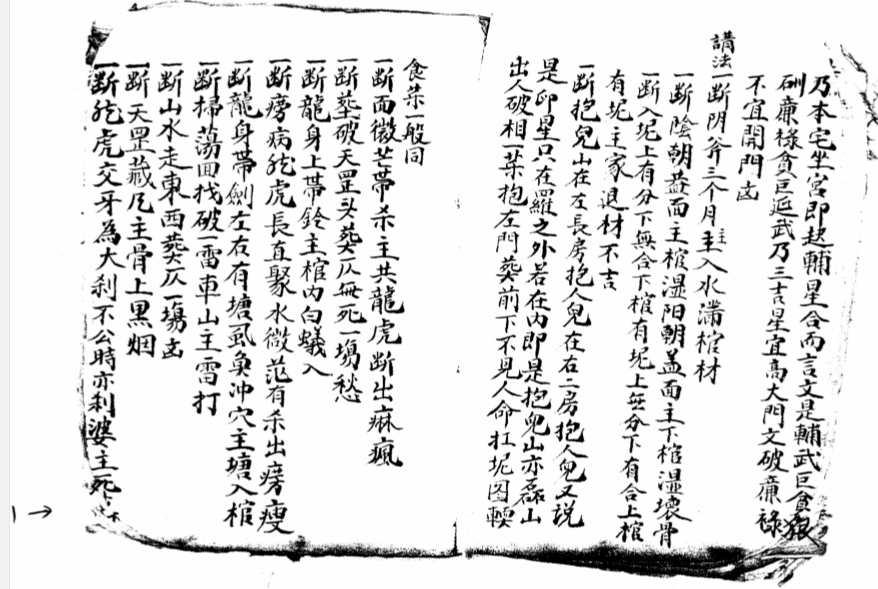 乃本宅坐宮即起輔星合而言文是輔武巨貪狼
破廉祿貪巨延武乃三吉星宜高大門文破廉祿
不宜開門凶
講法一斷阴斧三个月主主入水滿棺材
一斷陰朝益面主棺湿阳朝盖面主下棺湿壞骨
一斷入坭上有分下無合下棺有坭上無分下有合上棺
有坭主家退材不吉
一斷抱兒山在左長房抱人兒在右二房抱人兒又説
是卬星只在羅之外若在内即是抱兒山亦磊山
出人破相一菜抱左門葬前下不見人命扛坭图
食菜一般同
一斷面微芒帶杀主共龍虎斷出痳瘋
一斷塟破天罡头葬仄無死一塲愁
一斷龍身上帶鈴主棺内白蟻入
一斷痨病虎長直聚水微茫有杀出痨瘦
一斷龍身帶劍左右有塘虱奐冲穴主塘入棺
一斷掃荡回找破一雷車山主雷打
一斷山水走東西葬仄一塲凶
一斷天罡藏凡主骨上黑烟
一斷虎交牙為大刹不公時亦刹婆主死